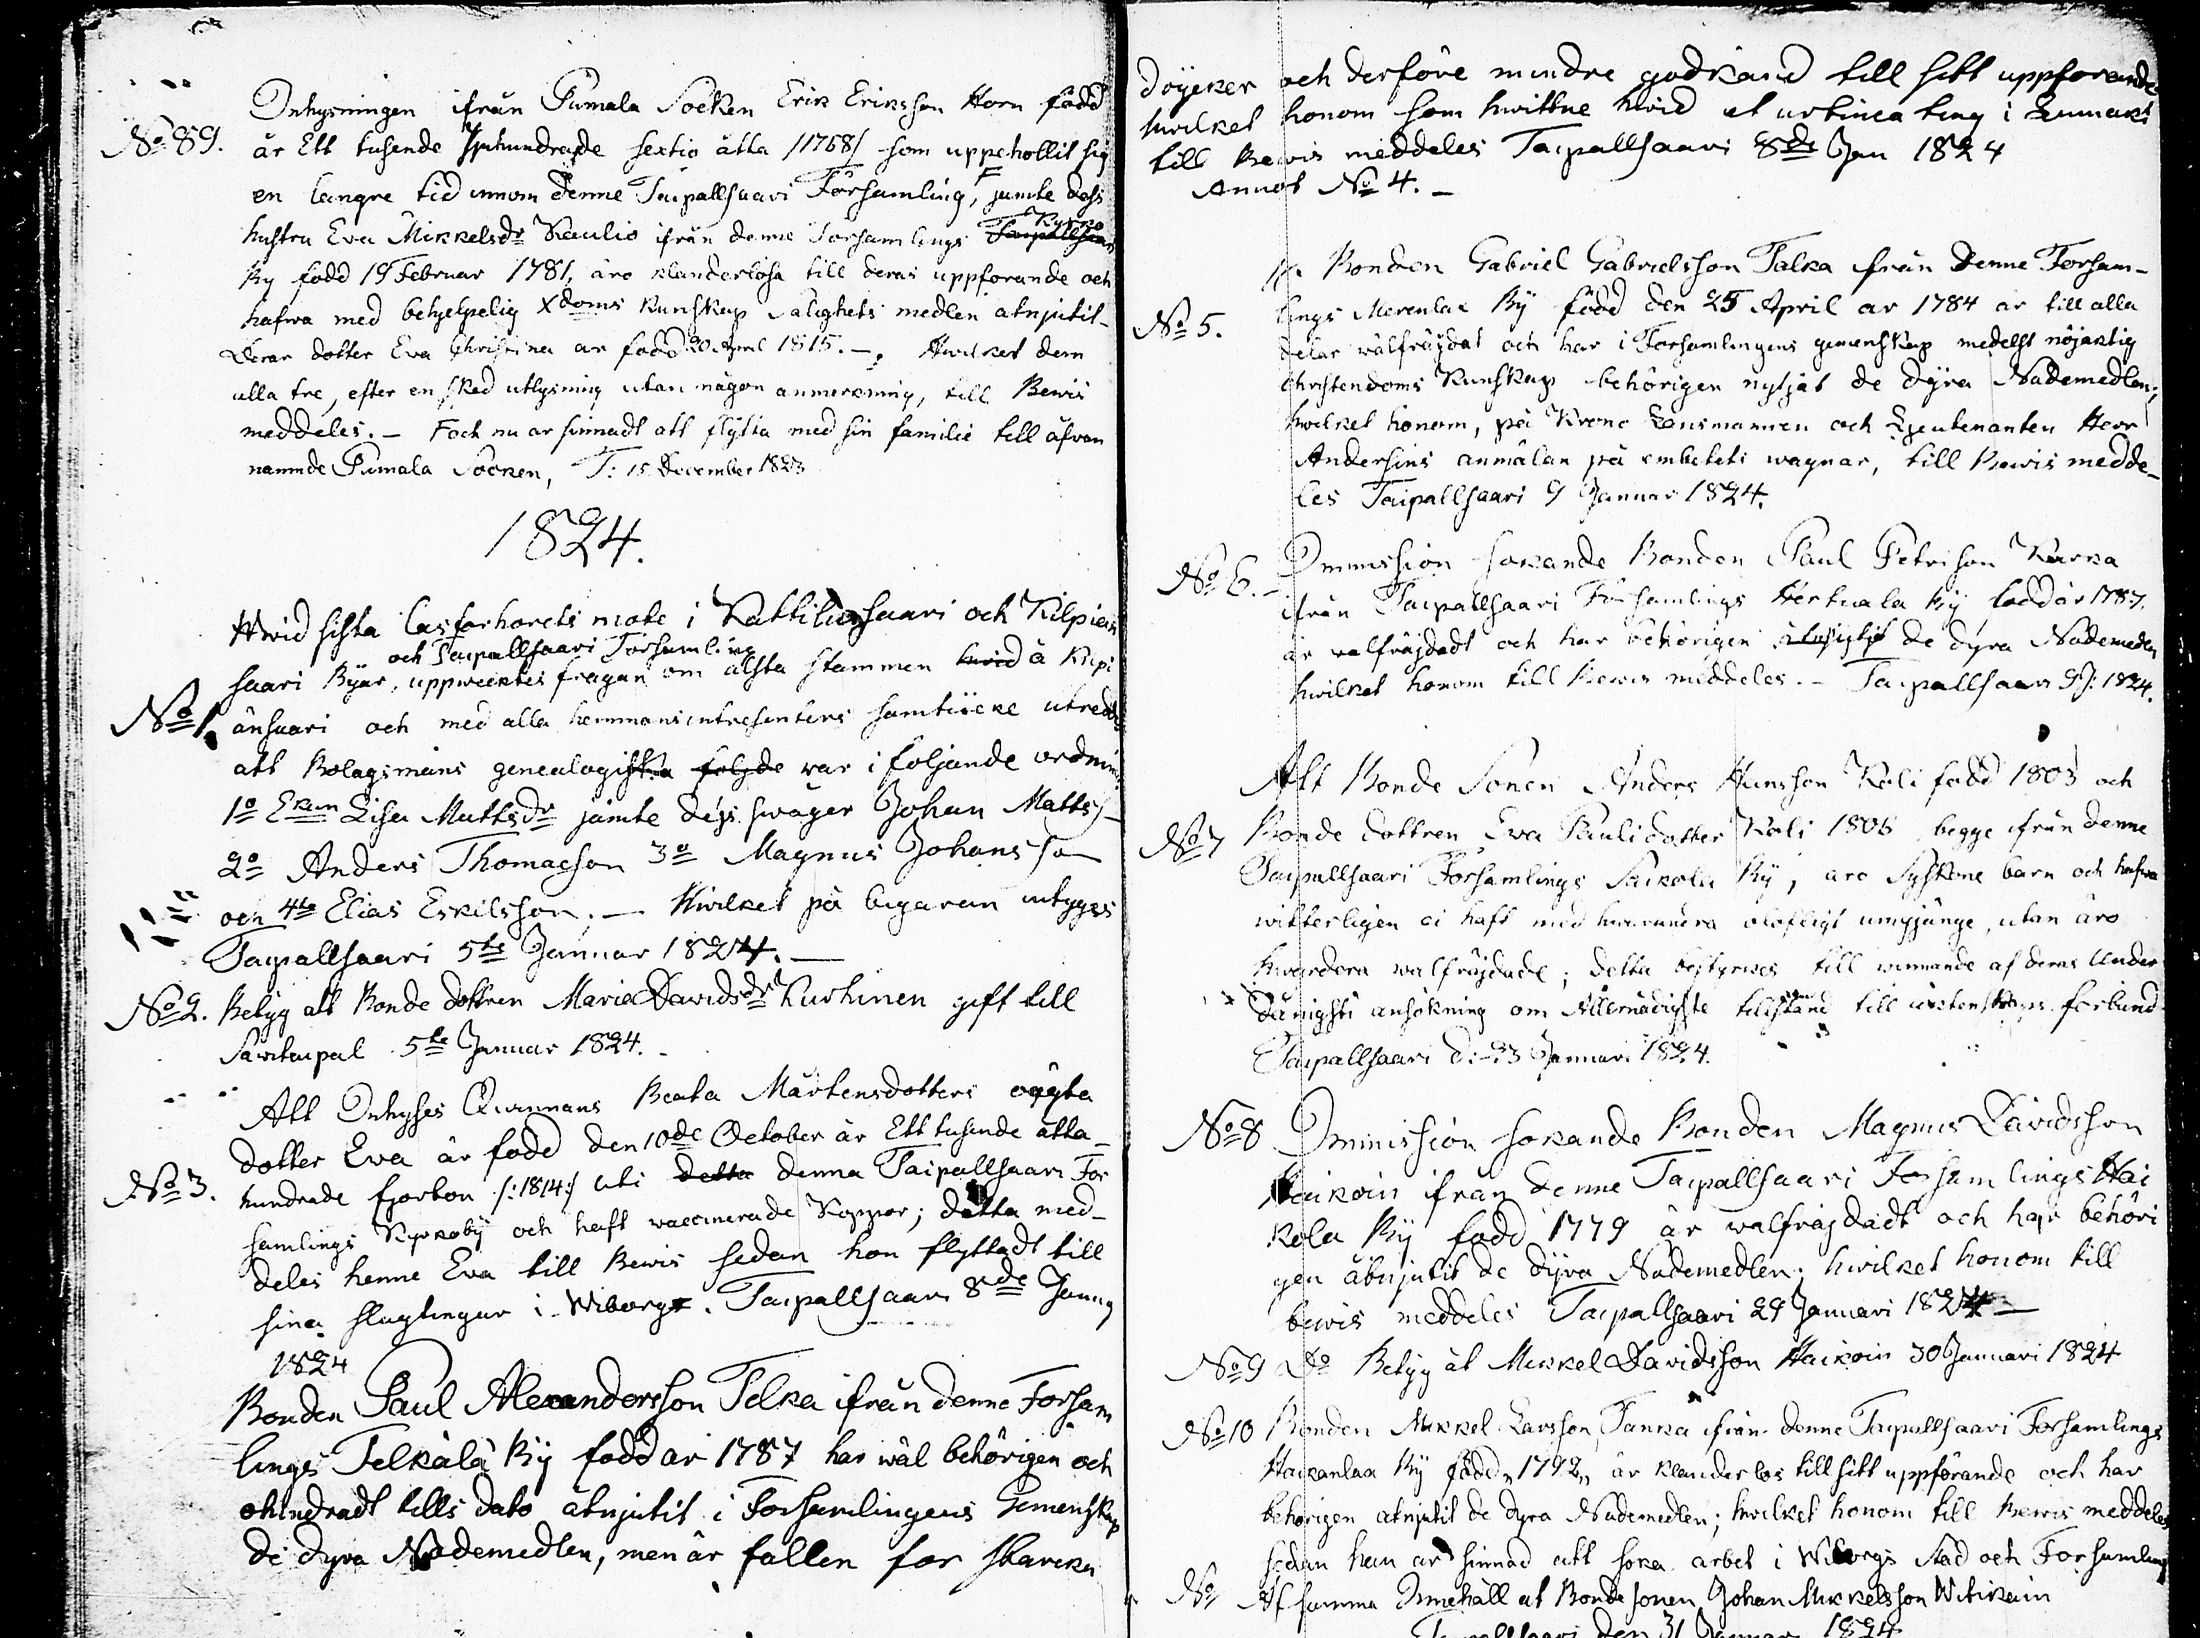 Inhysningen ifrån Pumala Socken Erik Eriksson Horn född
No 89. år Ett tusende Sjuhundrade sextio åtta /1768/ som uppehollit sig
en längre tid innom denne Taipallsaari Församling, F jamte dess
hustru Eva Mikkelsdr Kaulio ifrån denne Forsamlings Kyrko
By född 19 Februar 1781, äro klanderlösa till deras uppforande och
hafwa med behjelpelig Xdoms Kunskap Salighets medlen atnjutit_
Deras dotter Eva Christina ar född 20 April 1815. _ Hwilket dem
alla tre, efter en sked utlysning utan någon anmerkning, till Bewis
meddeles. _ F och nu ar sinnadt att flytta med sin familie till åfvan
namnde Pumala Socken, T: 15 December 1823
1824.
Hwid sista lasforhorets mote i Kattilusaari och Kilpiain
och Taipallsaari Forsamling
saari Byar, uppwecktes frågan om älsta stammen hwid å Kilpi
No 1. änsaari och med alla hemmansintresenters samtücke utredde
att Bolagsmäns genealogiska foljde war i foljande ordning
1o Enkan Lisa Mattsdr jämte dess swåger Johan Matts_
2o Anders Thomaeson 3o Magnus Johansson
och 4to Elias Eskilsson. _ Hwilket på begaran intygges
Taipallsaari 5te Januar 1824. _
No 2. Betyg att Bonde dottren Maria Davidsdr Kurhinen gift till
Savitaipal 5te Januar 1824.
Att Inhyses Qwinnans Beata Mårtensdotters oägta
dotter Eva är född den 10de October år Ett tusende åtta_
No 3. hundrade fjorton /:1814:/ uti detta denna Taipallsaari For
samlings Kyrkoby och haft waccinerade Koppor; detta med_
deles henne Eva till Bewis sedan hon flyttadt till
sina slägtingar i Wiborg. Taipallsaari 8de Januar
1824
Bonden Paul Alexandersson Telka ifrån denne Forsam
lings Telkälä By född ar 1787 har wäl behörigen och
ohindradt tills dato åtnjutit i Forsamlingens Gemenskap
de dyra Nådemedlen, men är fallen for starcka
dryker och derföre mindre godkänd till sitt uppforande
hwilket honom som hwittne hwid et urtima ting i Lumaki
till Bewis meddeles Taipallsaari 8de Jan 1824
Annot No 4. _
Bonden Gabriel Gabrielsson Talka från Denne Forsam_
No 5. lings Merenlax By född den 25 April ar 1784 är till alla
delar wälfräjdat och har i Forsamlingens gemenskap medelst nöjaktig
Christendoms Kunskap behörigen nytjat de dyra Nådemedlen;
hwilket honom, på Krono Lansmannen och Lieutenanten Herr
Andersins anmälan på embetets wagnar, till Bewis medde_
les Taipallsaari 9 Januar 1824.
No 6. Ommission sokande Bonden Paul Petrison Karka
ifrån Taipallsaari Forsamlings Hertuala By född år 1787.
är walfräjdadt och har behörigen de dyra Nådemedlen
hwilket honom till Bewis meddeles. _ Taipallsaari 9 J: 1824.
Att Bonde Sonen Anders Hansson Kali född 1803 och
No 7 Bonde dottren Eva Paulidotter Kali 1806 begge ifrån denne
Taipallsaari Forsamlings Saikola By, äro Syskone barn och hafwa
witterligen ei haft med hwarandra olofligt umgjänge, utan äro
hwardera walfräjdade; detta bestyrkes till winnande af deras Under
dånigsti ansökning om Allernådigste tillstånd till äktenskaps forbund
Taipallsaari d: 23 Januari 1824.
No 8 Ommission sokande Bonden Magnus Davidsson
Haikoin ifrån denne Taipallsaari Forsamlings Hai
kola By född 1779 är walfräjdadt och har behöri
gen åtnjutit de dyra Nådemedlen; hwilket honom till
bewis meddeles Taipallsaari 29 Januari 1824 _
No 9 Do Betyg åt Mikkel Davidsson Haikoin 30 Januari 1824
No 10 Bonden Mikkel Larsson Tanka ifrån denne Taipallsaari Forsamlings
Haikanlax By född 1792 är klanderlos till sitt uppförande och har
behorigen atnjutit de dyra Nådemedlen; hwilket honom till Bewis meddeles
sedan han är sinnad att soka arbet i Wiborgs Stad och Forsamling
No Af samma Innehåll åt Bonde sonen Johan Mikkelsson Witikain
Taipallsaari den 31 Januar 1824